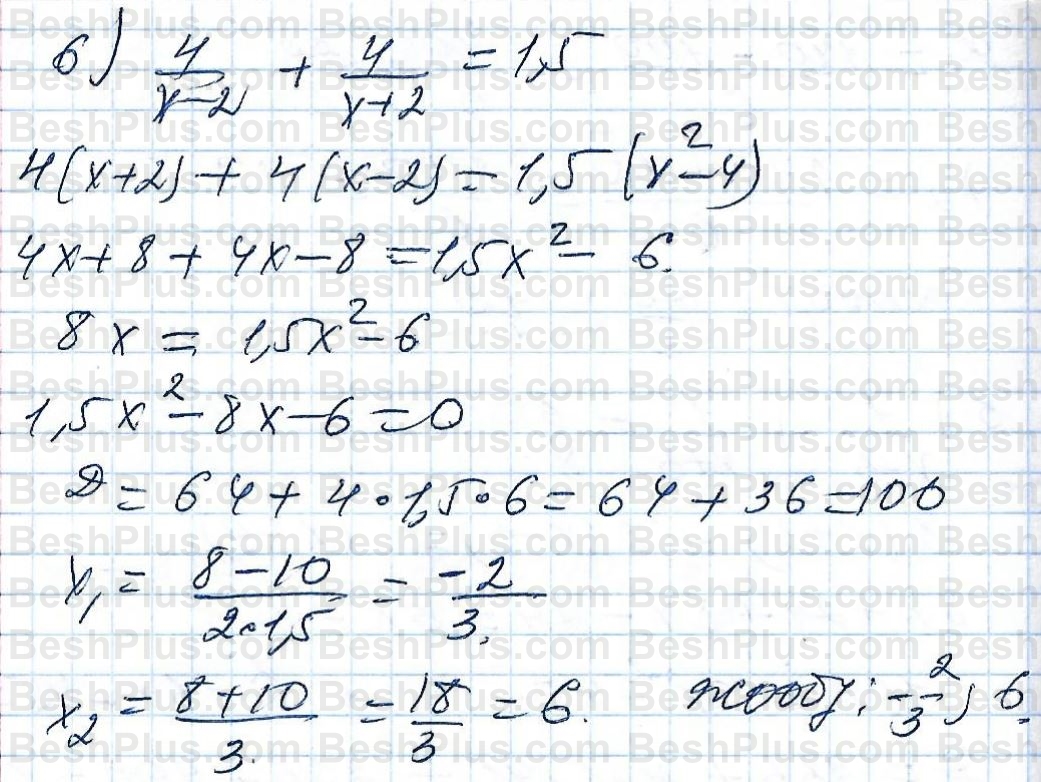 б) 4/(x-2) + 4/(x+2) = 1,5
4(x+2) + 4(x-2) = 1,5 (x²-4)
4x + 8 + 4x - 8 = 1,5x² - 6.
8x = 1,5x² - 6
1,5x² - 8x - 6 = 0
D = 64 + 4•1,5•6 = 64 + 36 = 100
x₁ = (8-10)/(2•1,5) = -2/3.
x₂ = (8+10)/3. = 18/3 = 6. жообу: -2/3; 6.
BeshPlus.com